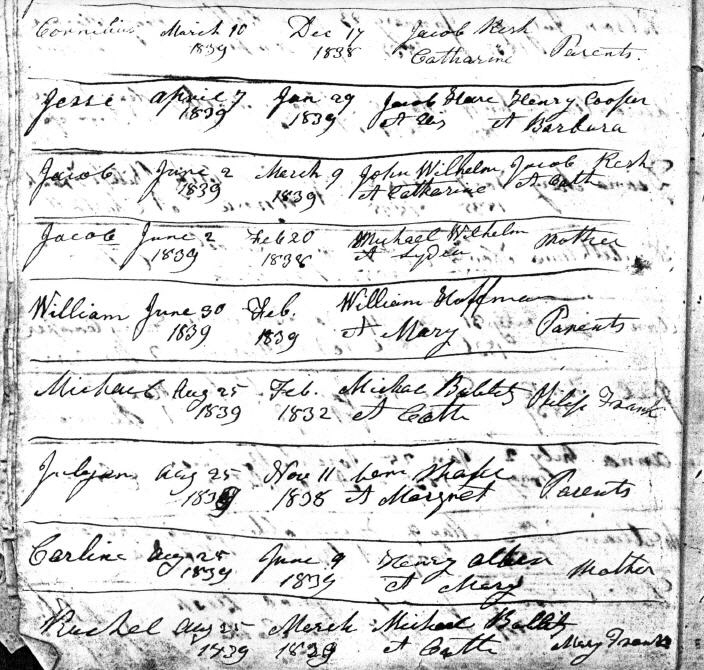 Cornelius March 10 Dec 17 Jacob Resh
1839 1838 Catharine Parents.
Jesse april 7 Jan 29 Jacob Hare Henry Cooper
1839 1839 A Barbara
Jacob June 2 March 9 John Wilhelm Jacob Resh
1839 1839 A Catharine A Cath
Jacob June 2 Feb 20 Michael Wilhelm Mother
1839 1838 A Lydia
William June 30 Feb. William Hoffman
1839 1839 A Mary Parents
Michael Aug 25 Feb. Michal Bablitz Philip Frank
1839 1832 A Cath
Julyan Aug 25 Nov 11 Shafe
1839 1838 A Margret Parents
Carline Aug 25 June 9 Henry
1839 1839 A Mary Mother
Rachel Aug 25 March Michael Bablitz
1839 1839 A Cath Mary Frank